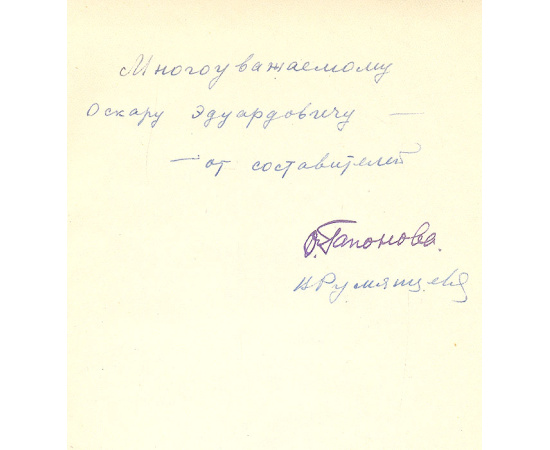 Многоуважаемому
Оскару Эдуардовичу —
— от составителей
О. Гапонова.
Н Румянцева